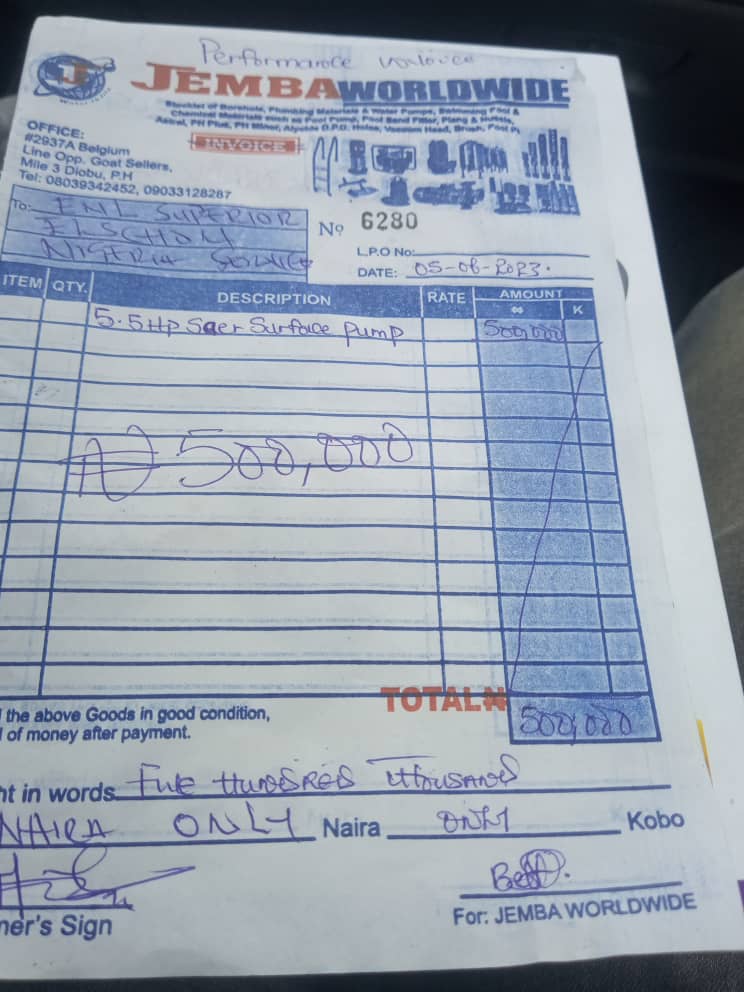 Performance invoice
JEMBA WORLDWIDE
Stockist of Borehole, Plumbing Materials & Water Pumps, Swimming Pool &
Chemical Materials such as Pool Pump, Pool Sand Filter,
Astral, PH Plus, PH Minor, Vacuum Head, Brush,
INVOICE
OFFICE:
#2937A Belgium
Line Opp. Goat Sellers,
Mile 3 Diobu, P.H
Tel: 08039342452, 09033128287
To: ENL SUPERIOR
NIGERIA
Nº 6280
L.P.O No:
DATE: 05-06-2023.
ITEM QTY. DESCRIPTION RATE AMOUNT
₦ K
5.5Hp Saer Surface pump 500,000
₦ 500,000
TOTAL ₦ 500,000
the above Goods in good condition,
of money after payment.
nt in words Five HUNDRED THOUSAND
NAIRA ONLY Naira ONLY Kobo
ner's Sign
For: JEMBA WORLDWIDE